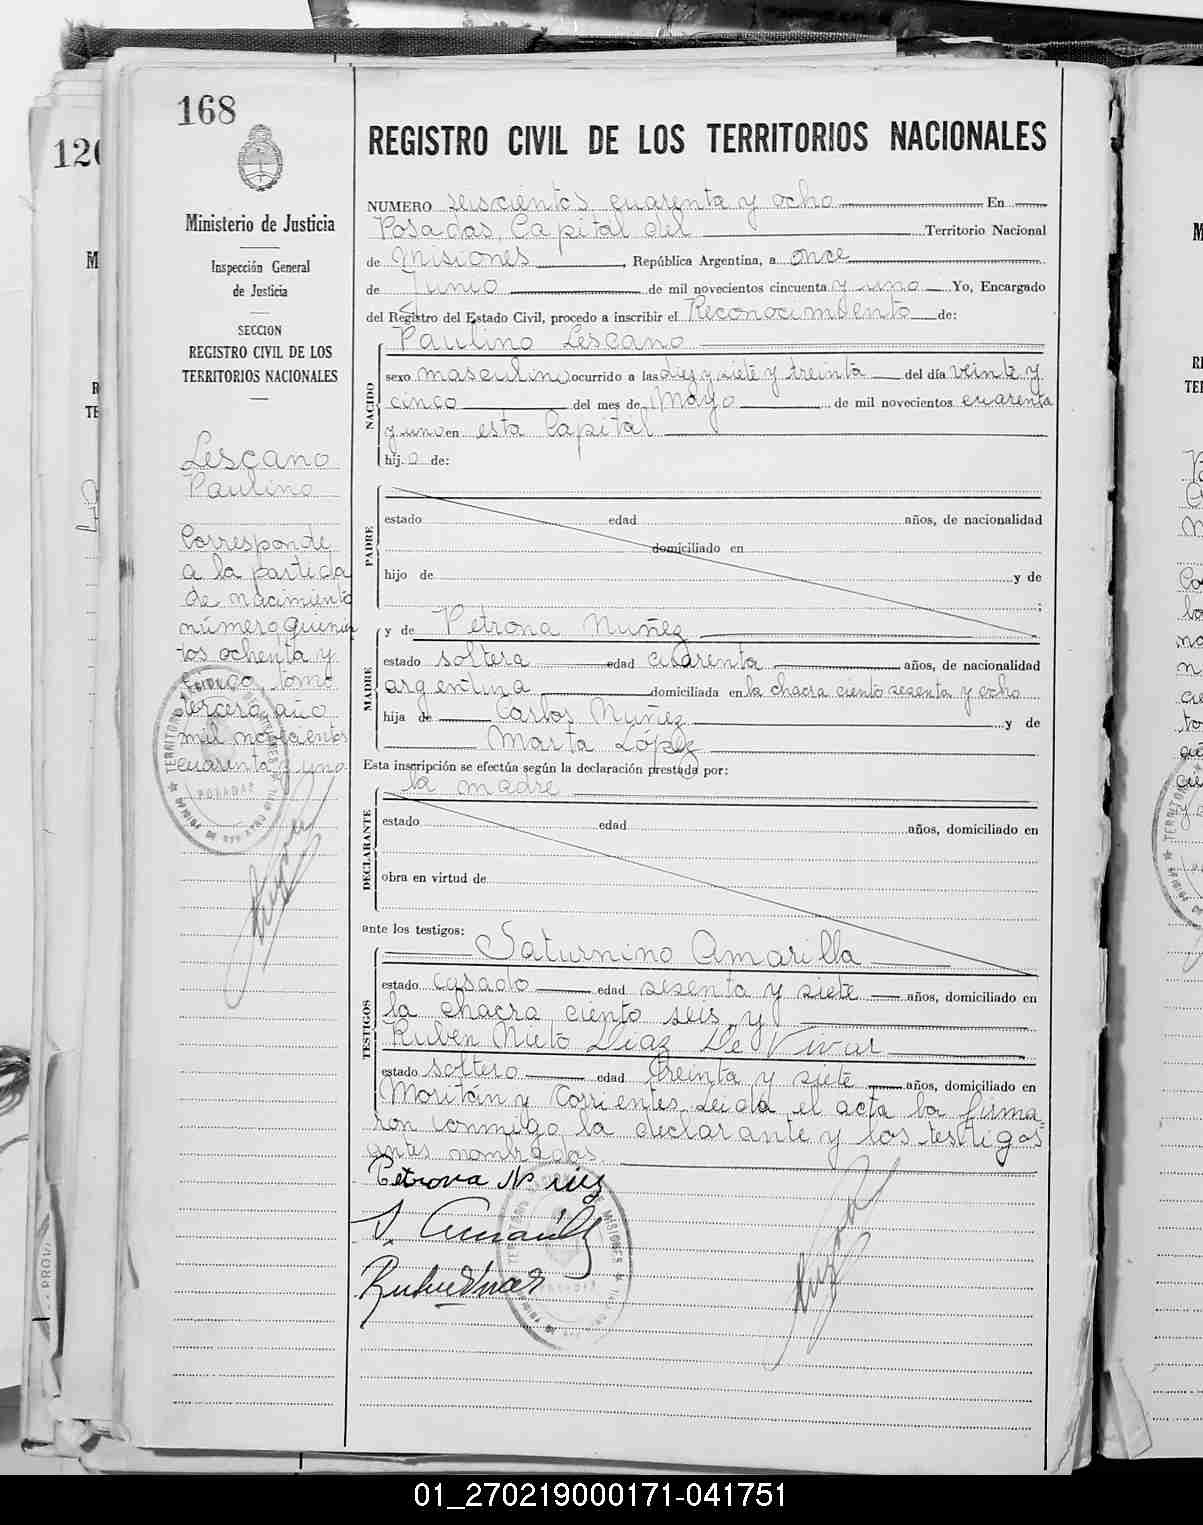 168
120
Ministerio de Justicia
Inspección General
de Justicia
SECCION
REGISTRO CIVIL DE LOS
TERRITORIOS NACIONALES
Lescano
Paulino
Corresponde
a la partida
de nacimiento
número quinien
tos ochenta y
cinco tomo
tercero año
mil novecientos
cuarenta y uno
POSADAS
REGISTRO CIVIL DE LOS TERRITORIOS NACIONALES
NUMERO seiscientos cuarenta y ocho En
Posadas, Capital del Territorio Nacional
de Misiones, República Argentina, a once
de Junio de mil novecientos cincuenta y uno Yo, Encargado
del Registro del Estado Civil, procedo a inscribir el Reconocimiento de:
NACIDO
Paulino Lescano
sexo masculino ocurrido a las diez y siete y treinta del día veinte y
cinco del mes de Mayo de mil novecientos cuarenta
y uno en esta Capital
hijo de:
PADRE
estado edad años, de nacionalidad
domiciliado en
hijo de y de
;
MADRE
y de Petrona Nuñez
estado soltera edad cuarenta años, de nacionalidad
argentina domiciliada en la chacra ciento sesenta y ocho
hija de Carlos Nuñez y de
Marta López
Esta inscripción se efectúa según la declaración prestada por:
la madre
DECLARANTE
estado edad años, domiciliado en
obra en virtud de
ante los testigos:
TESTIGOS
Saturnino Amarilla
estado casado edad sesenta y siete años, domiciliado en
la chacra ciento seis y
Ruben Nieto Diaz De Vivar
estado soltero edad treinta y siete años, domiciliado en
Moritán y Corrientes. Leida el acta la firma=
ron conmigo la declarante y los testigos
antes nombrados.
Petrona N
S. Amarilla
MISIONES
01_270219000171-041751